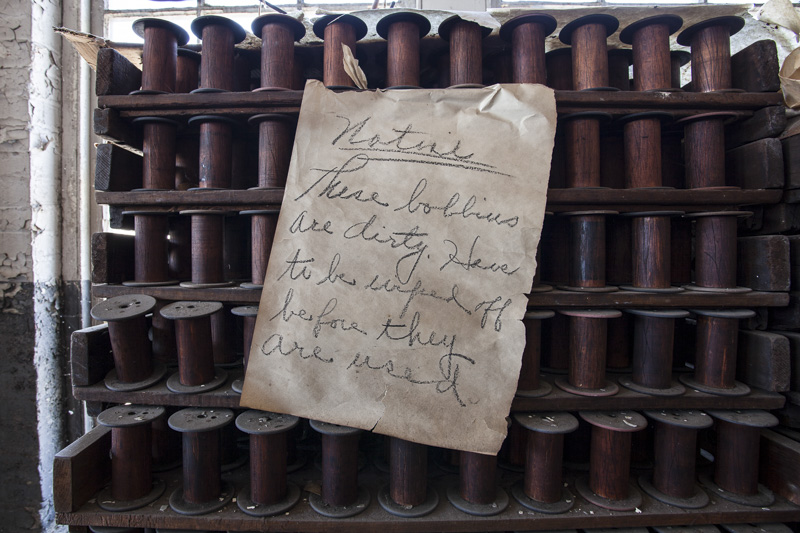 Notice
These bobbins
are dirty. Have
to be wiped off
before they
are used.